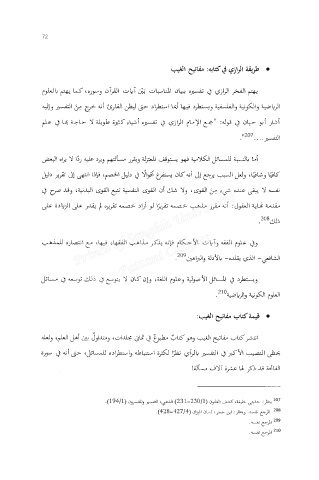 72
• طريقة الرازي في كتابه: مفاتيح الغيب
يهتم الفخر الرازي في تفسيره ببيان المناسبات بيْن آيات القرآن وسوره، كما يهتم بالعلوم
الرياضية والكونية والفلسفية ويستطرد فيها أيما استطراد حتى ليظن القارئ أنه خرج مِنَ التفسير وإليه
أشار أبو حيان في قوله: "جمع الإمام الرازي في تفسيره أشياء كثيرة طويلة لا حاجة بها في علم
التفسير....."207.
أما بالنسبة للمسائل الكلامية فهو يستوقف المعتزلة ويقرر مسألتهم ويرد عليه ردًّا لا يراه البعض
كافيًا وشافيًا، ولعل السبب يرجع إلى أنه كان يستفرغ أقوالًا في دليل الخصم، فإذا انتهى إلى تقرير دليل
نفسه لا يبقى عنده شيء مِنَ القوى، ولا شك أن القوى النفسية تتبع القوى البدنية، وقد صرح في
مقدمة نهاية العقول: أنه مقرر مذهب خصمه تقريرًا لو أراد خصمه تقريره لم يقدر على الزيادة على
ذلك208.
وفي علوم الفقه وآيات الأحكام فإنه يذكر مذاهب الفقهاء فيها، مع انتصاره للمذهب
الشافعي- الذي يقلده- بالأدلة والبراهين209
ويستطرد في المسائل الأصولية وعلوم اللغة، وإن كان لا يتوسع في ذلك توسعه في مسائل
العلوم الكونية والرياضية210.
• قيمة كتاب مفاتيح الغيب:
انتشر كتاب مفاتيح الغيب وهو كتابٌ مطبوعٌ في ثماني مجلدات، ومتداولٌ بين أهل العلم، ولعله
يحظى النصيب الأكبر في التفسير بالرأي نظرًا لكثرة استنباطه واستطراده للمسائل، حتى أنه في سورة
الفاتحة قد ذكر لها عشرة آلاف مسألة!
207 ينظر: حاجي خليفة، كشف الظنون (230/1–231) الذهبي، التفسير والمفسرون (194/1).
208 المرجع نفسه. وينظر: ابن حجر، لسان الميزان (427/4–428).
209 المرجع نفسه.
210 المرجع نفسه.